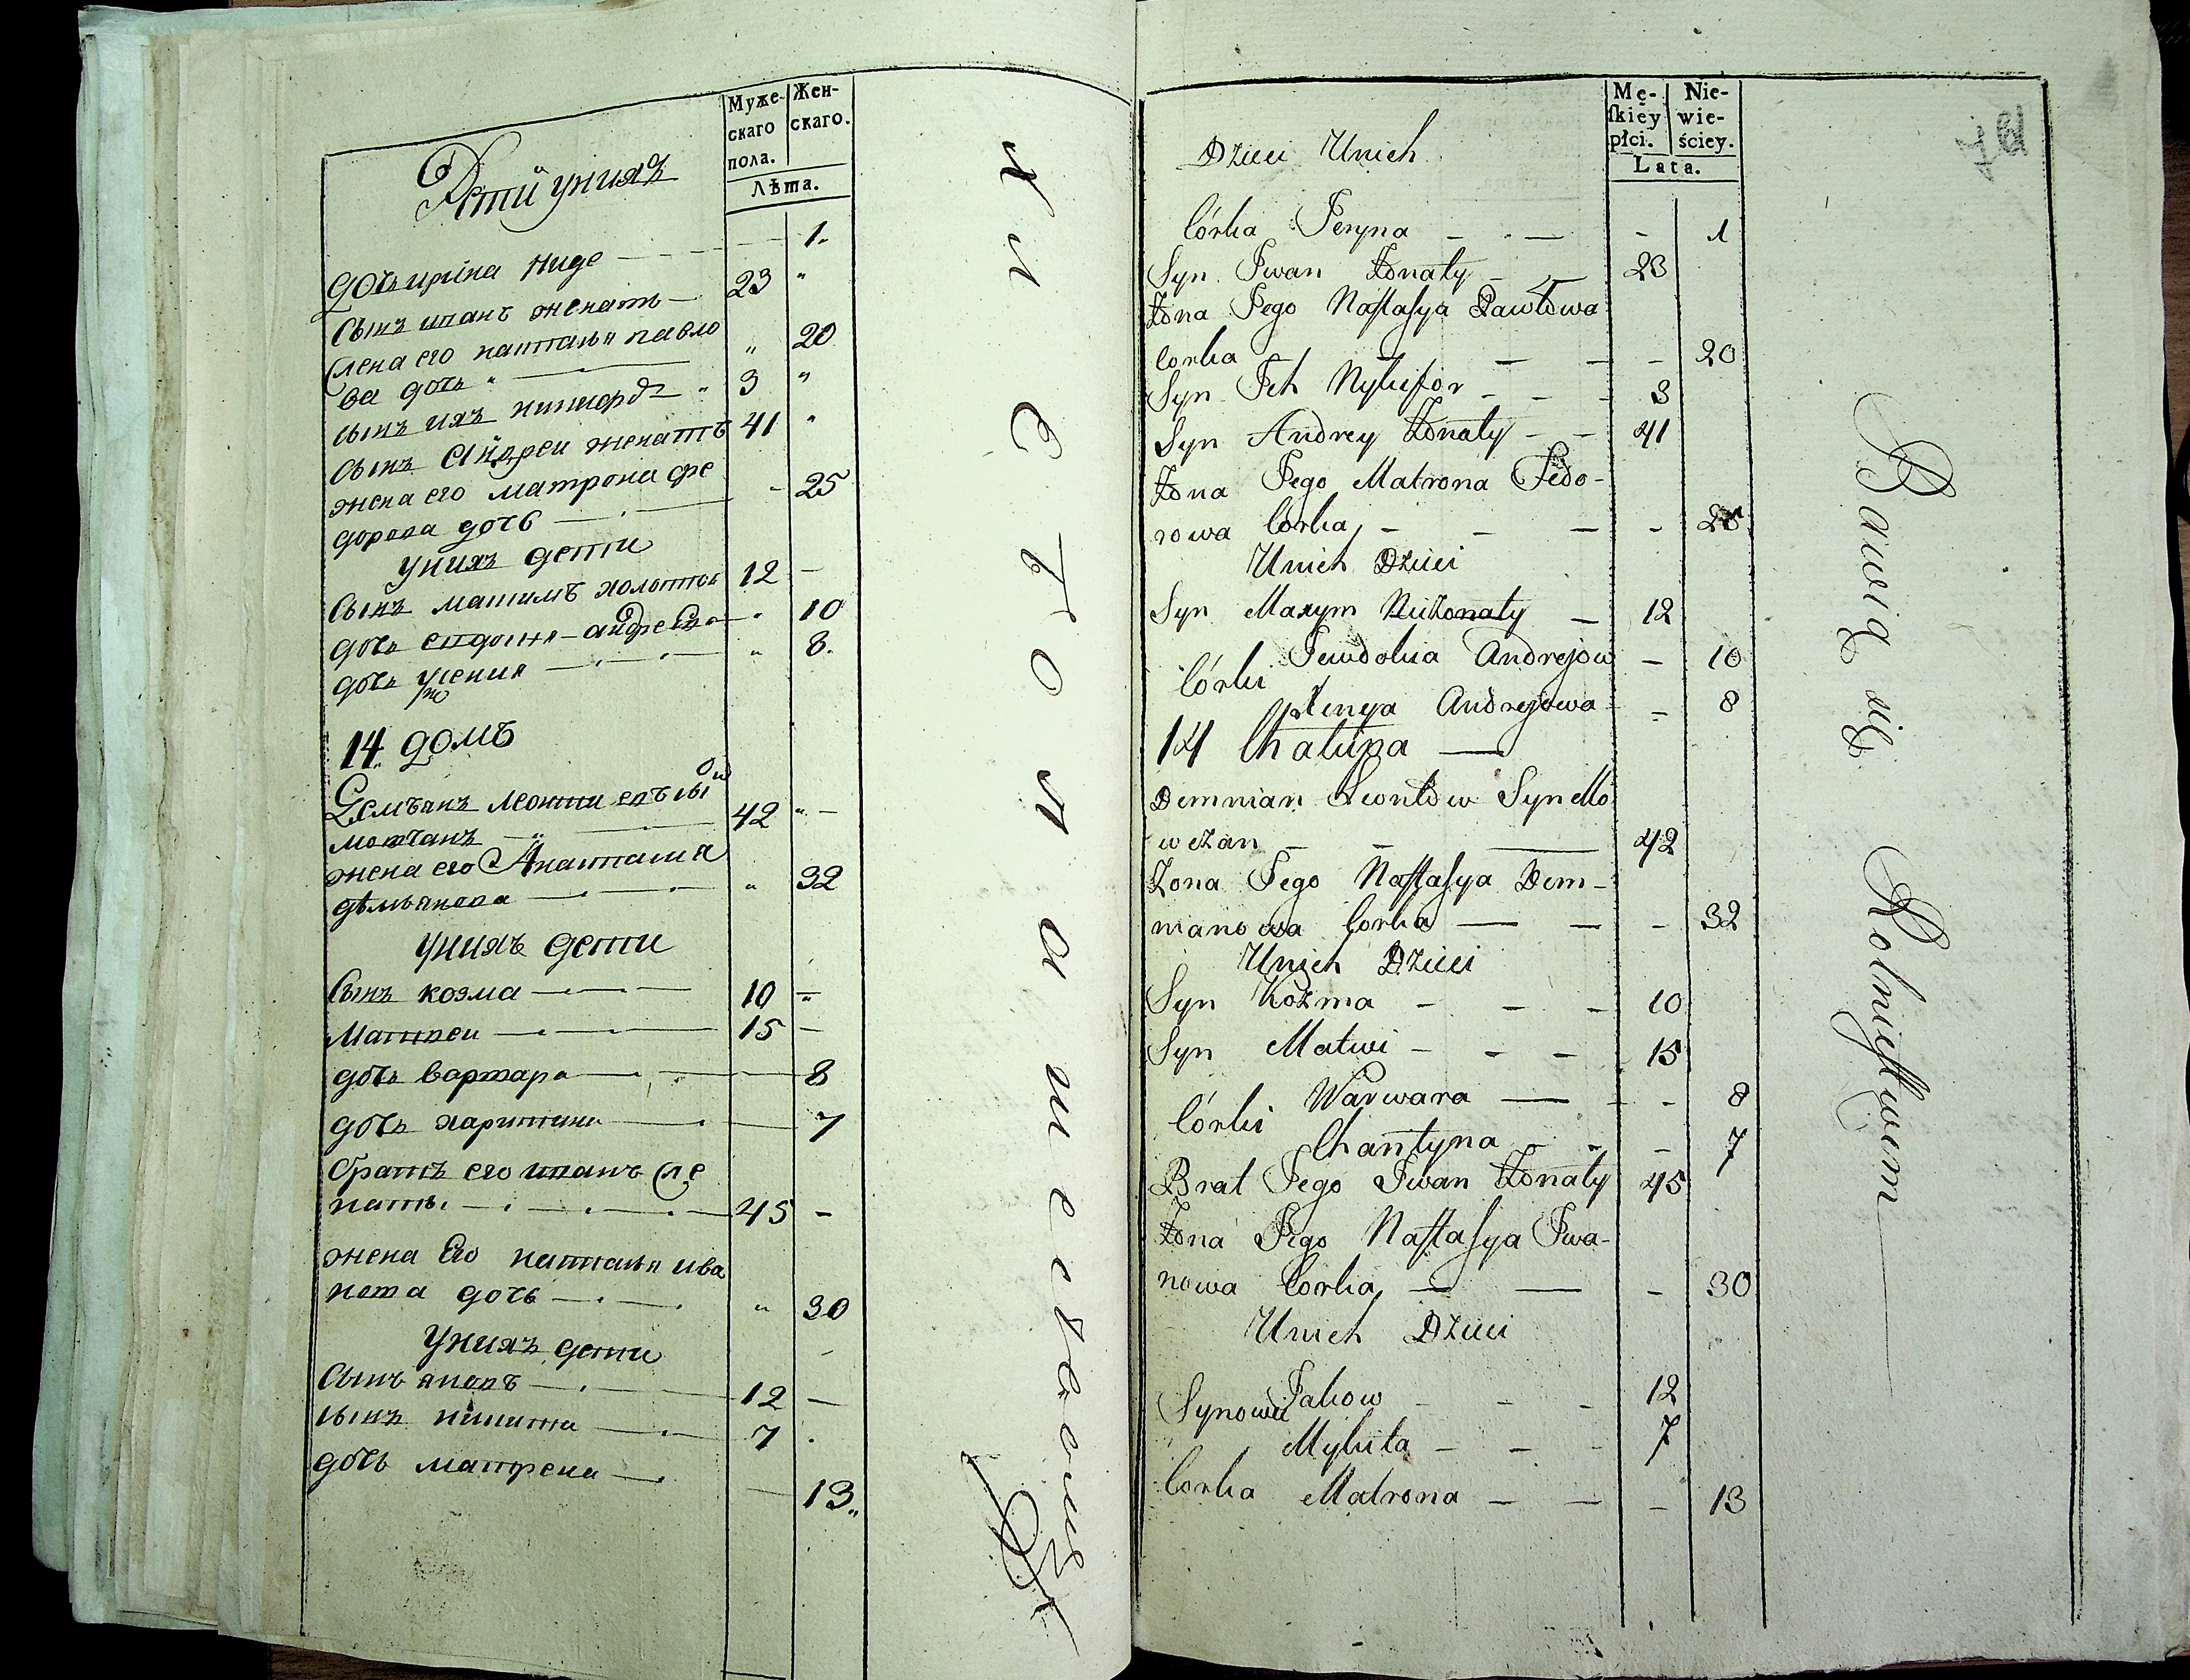 Муже-
скаго
пола.
Жен-
скаго.
Лѣта.
Дети уних
1.
дочь
сынъ иванъ женатъ 23 "
жена его настасья павло
ва дочь " " 20
сынъ ихъ никифоръ " 3 "
сынъ Андреи женатъ 41 "
жена его матрона фе
дорова дочь - 25
уних дети
сынъ максимъ холостъ 12 -
дочь евдокия андреева " 10
дочь " 8.
14. домъ
Демъянъ сы
42 " -
жена его Анастасия
демьянова " 32
уних дети
сынъ козма 10 -
Матвеи 15 -
дочь варвара 8
дочь харитина 7
братъ его иванъ же
натъ. 45 -
жена Его настасья ива
нова дочь " 30
Уних дети
сынъ яковъ 12 -
сынъ никита 7 .
дочь матрена
13.
Mę-
ſkiey
płci.
Nie-
wie-
ściey.
Lata.
Dzieci Unich
Córka Jeryna - 1
Syn Iwan Żonaty 23
Żona Jego Naſtaſya Pawłowa
Corka - 20
Syn Ich Nykifor 3
Syn Andrey Żonaty 41
Żona Jego Matrona Fedo-
rowa Corka - 25
Unich Dzieci
Syn Maxym Nieżonaty 12
Jewdokia Andrejow - 10
Córki
Xenya Andrejowa - 8
14 Chałupa
Demnian Leontow Syn Mo
wczan 42
Żona Jego Naſtaſya Dem-
nianowa Corka - 32
Unich Dzieci
Syn Kozma 10
Syn Matwi 15
Warwara - 8
Córki
Charytyna - 7
Brat Jego Iwan Żonaty 45
Żona Jego Naſtaſya Iwa-
nowa Corka - 30
Unich Dzieci
Jakow 12
Synowie
Mykita 7
Corka Matrona - 13
Bawią się Rolnictwem